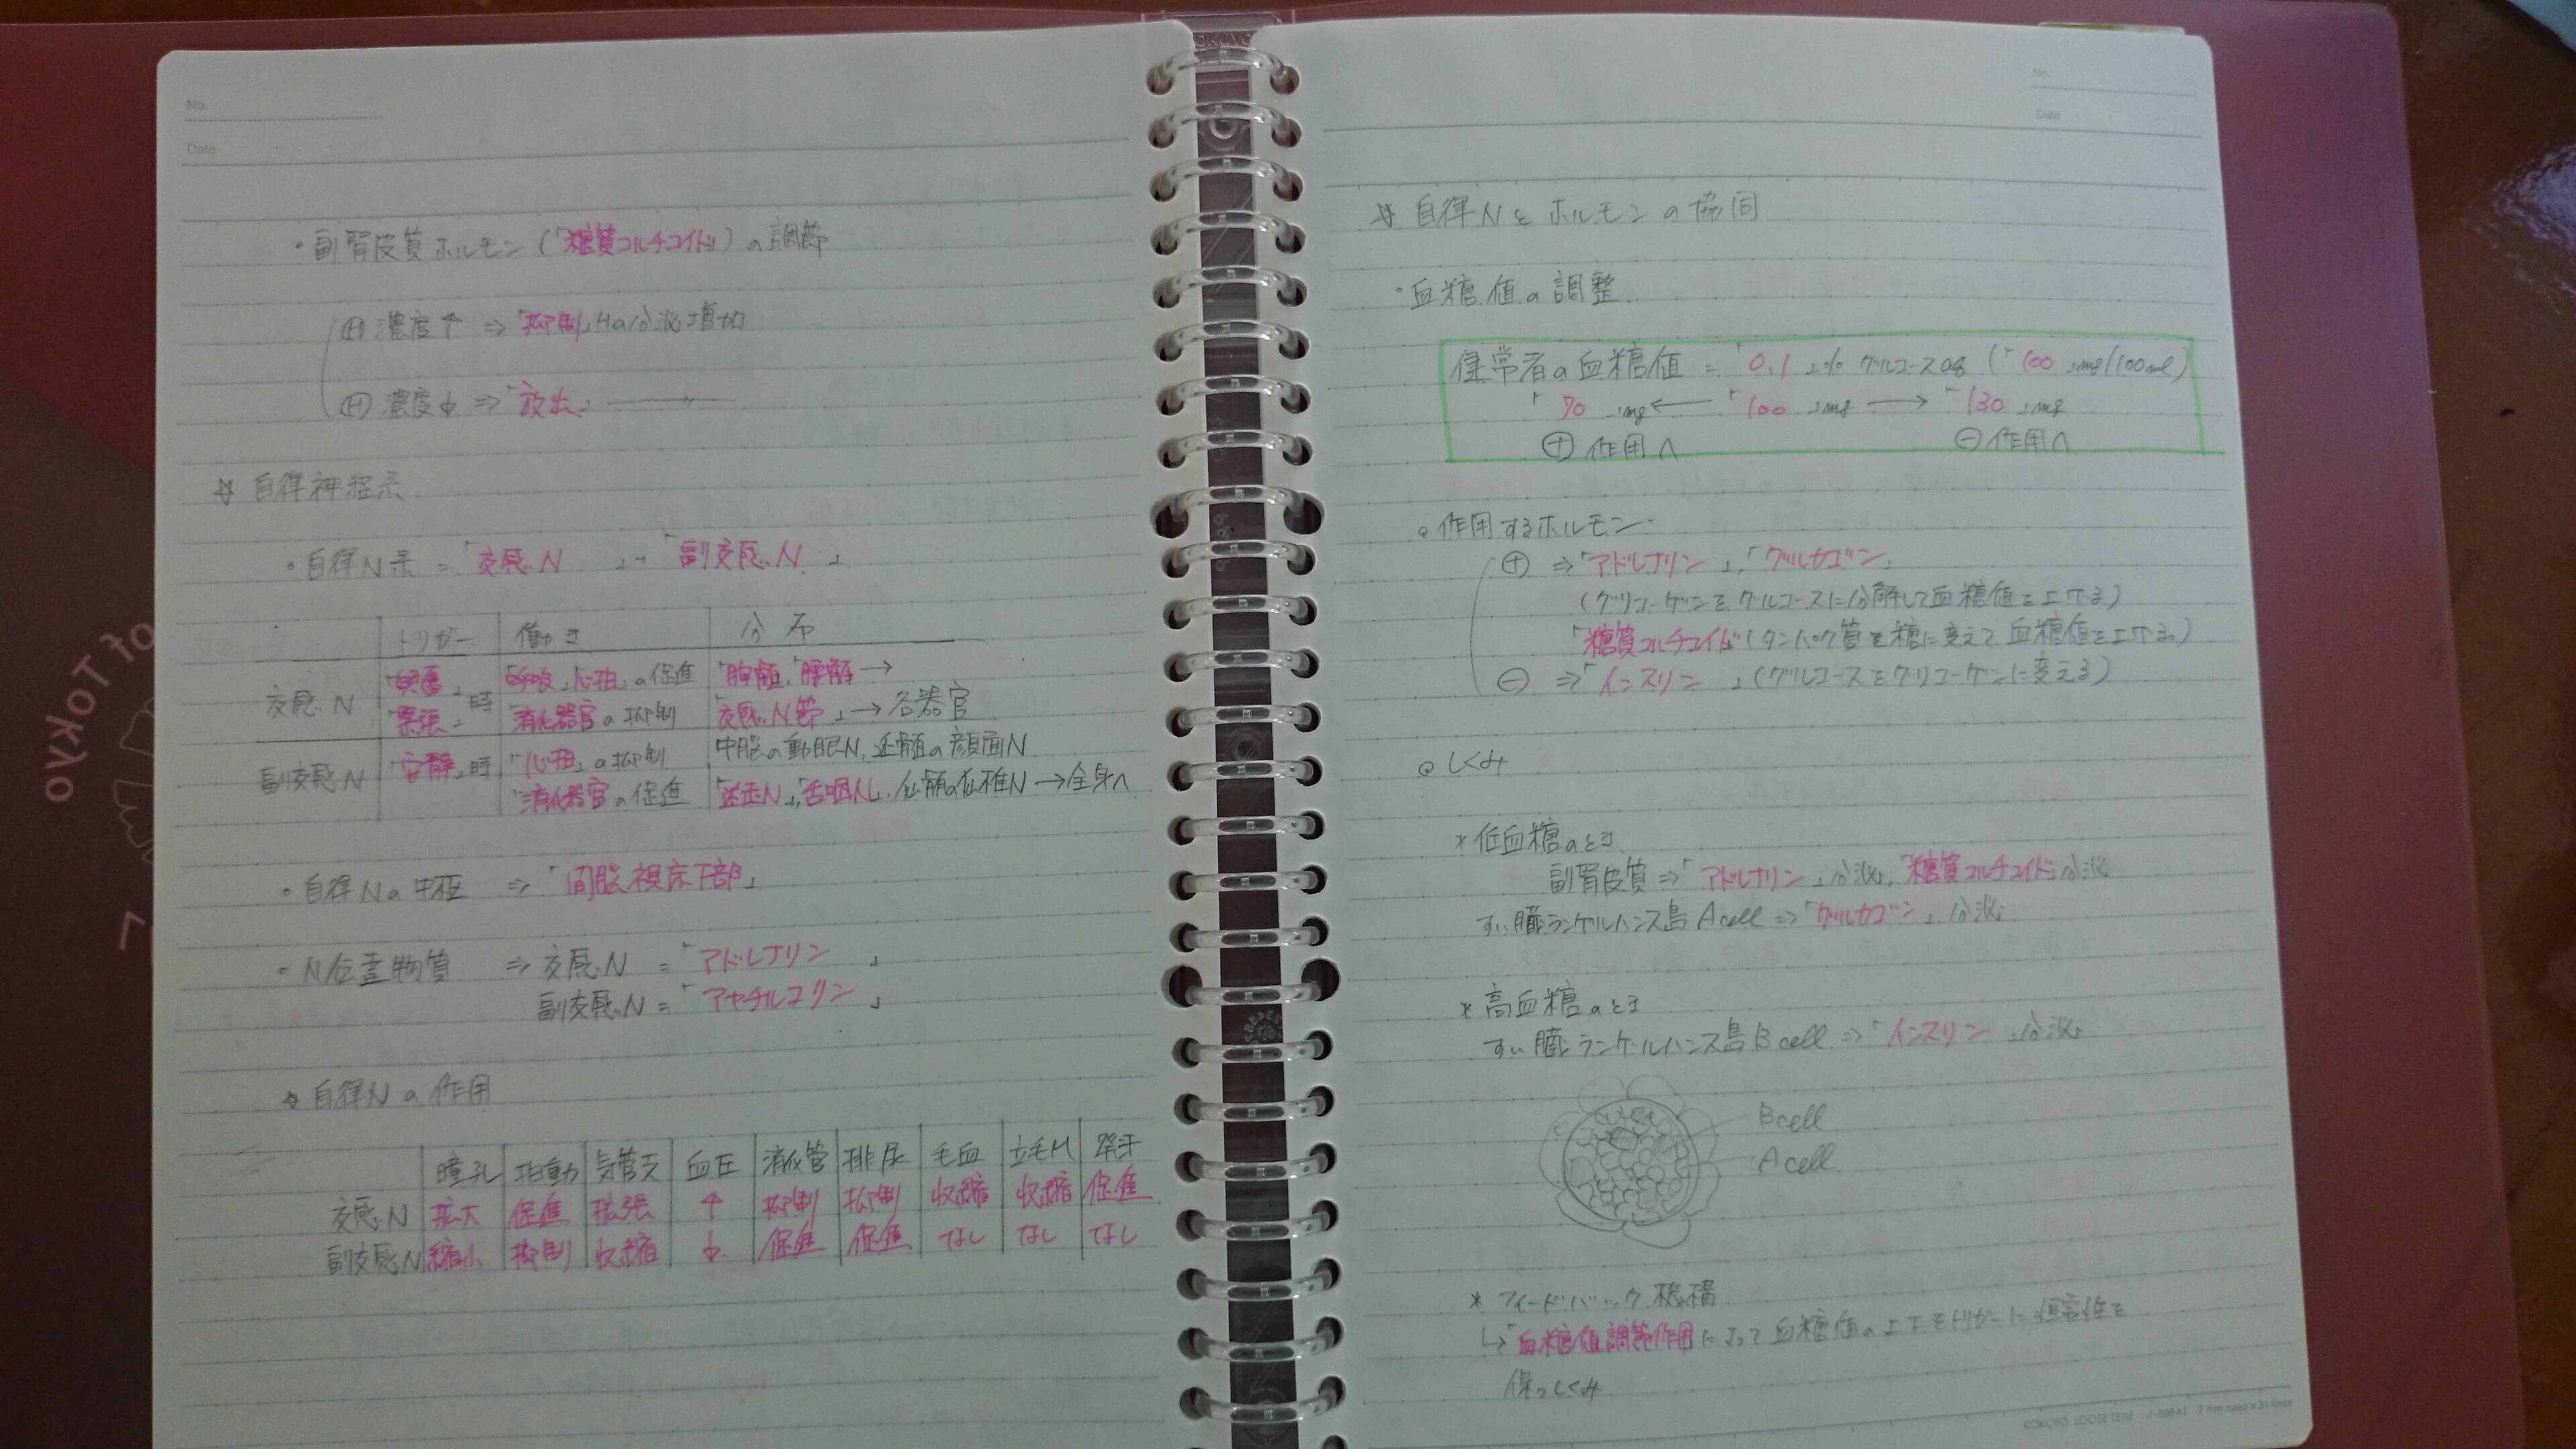 No.
Date
・副腎皮質ホルモン(「糖質コルチコイド」)の調節
Ⓗ濃度↑ ⇒「抑制」Hの分泌増加
Ⓗ濃度↓ ⇒「放出」 〃
☆ 自律神経系
・自律N系 = 「交感N」+「副交感N」
トリガー 働き 分布
交感N 「興奮」「緊張」時 「呼吸」「心拍」の促進 「胸髄」「腰髄」→
「消化器官」の抑制 「交感N節」→各器官
副交感N 「安静」時 「心拍」の抑制 中脳の動眼N, 延髄の顔面N
「消化器官」の促進 「迷走N」,「舌咽N」, 仙髄の仙椎N →全身へ
・自律Nの中枢 ⇒ 「間脳視床下部」
・N伝達物質 ⇒ 交感N = 「アドレナリン」
副交感N = 「アセチルコリン」
☆ 自律Nの作用
瞳孔 拍動 気管支 血圧 消化管 排尿 毛血 立毛M 発汗
交感N 拡大 促進 拡張 ↑ 抑制 抑制 収縮 収縮 促進
副交感N 縮小 抑制 収縮 ↓ 促進 促進 なし なし なし
of Tokyo
No.
Date
☆ 自律Nとホルモンの協同
・血糖値の調整
健常者の血糖値 = 「0.1」% グルコースaq (「100」mg/100ml)
「70」mg ← 「100」mg → 「130」mg
⊕作用へ ⊖作用へ
・作用するホルモン
⊕ ⇒「アドレナリン」,「グルカゴン」
(グリコーゲンをグルコースに分解して血糖値を上げる)
「糖質コルチコイド」(タンパク質を糖に変えて血糖値を上げる)
⊖ ⇒「インスリン」(グルコースをグリコーゲンに変える)
◎ しくみ
* 低血糖のとき
副腎皮質⇒「アドレナリン」分泌,「糖質コルチコイド」分泌
すい臓ランゲルハンス島 A cell ⇒「グルカゴン」分泌
* 高血糖のとき
すい臓ランゲルハンス島 B cell ⇒「インスリン」分泌
B cell
A cell
* フィードバック機構
↳「血糖値調節作用」によって血糖値の上下をトリガーに恒常性を
保つしくみ
KOKUYO LOOSE-LEAF ノ-836AT 7 mm ruled×31 lines